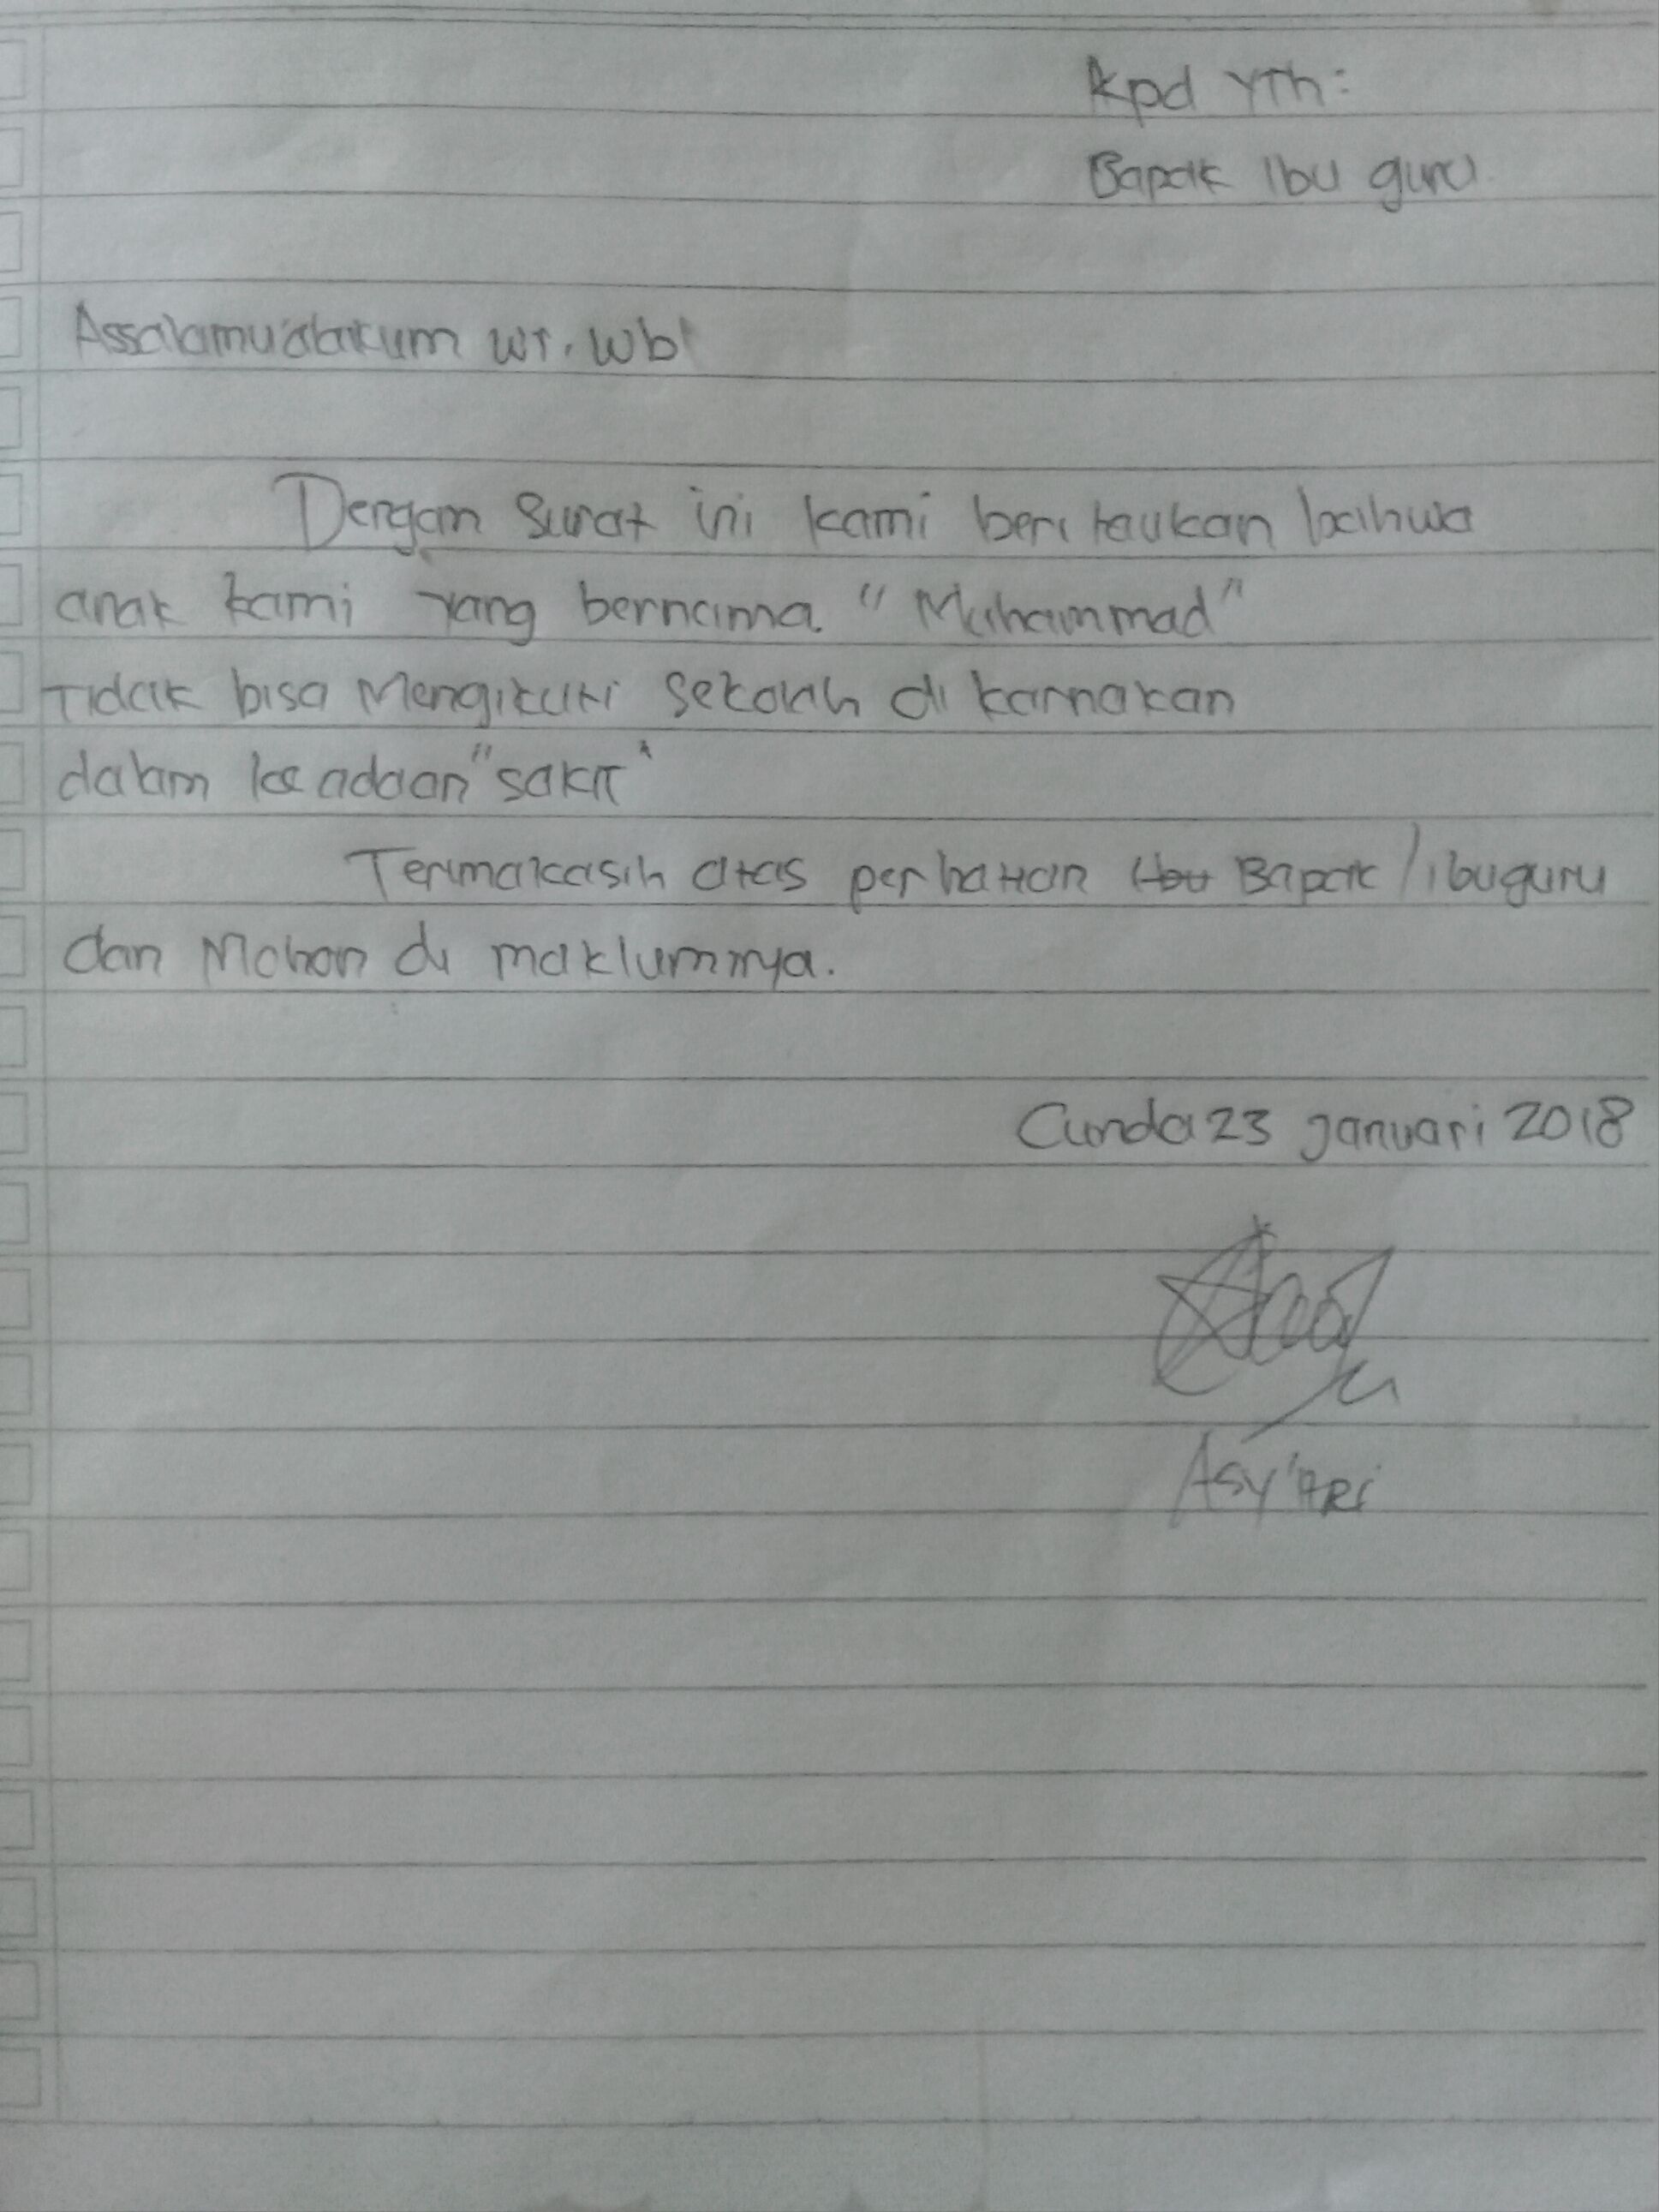 Kpd YTh:
Bapak Ibu guru
Assalamu'alaikum wr. wb
Dengan Surat ini kami beri taukan bahwa
anak kami yang bernama "Muhammad"
Tidak bisa Mengikuti Sekolah di karnakan
dalam keadaan "sakit"
Terimakasih atas perhatian Ibu Bapak / ibu guru
dan Mohon di maklumnya.
Cunda 23 Januari 2018
Asy'ARi